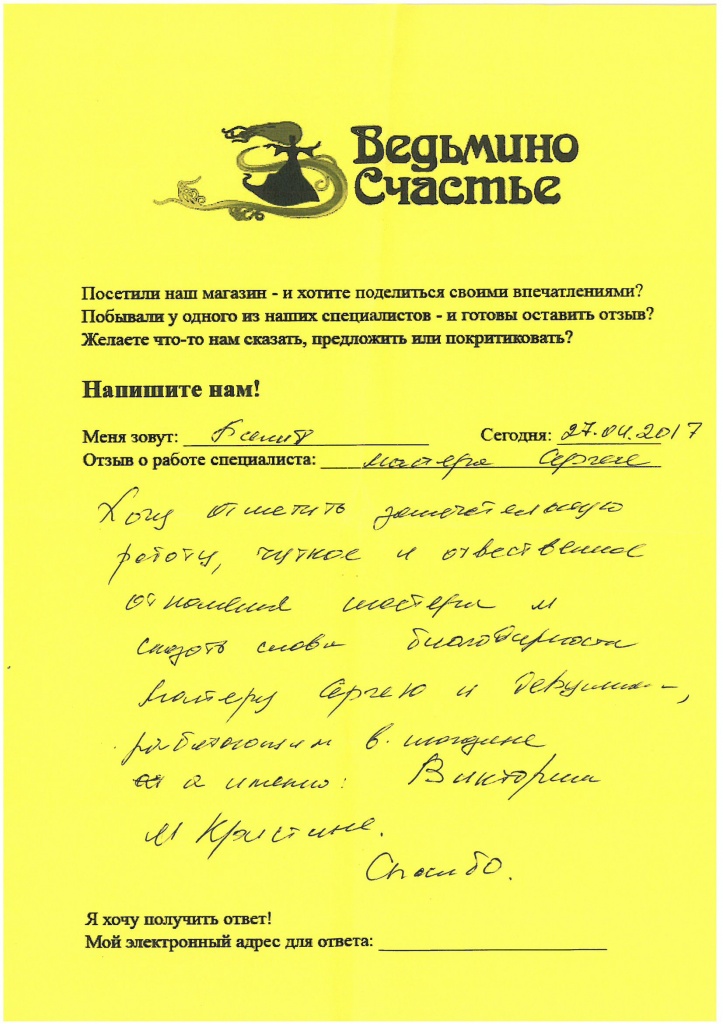 Ведьмино
Счастье
Посетили наш магазин - и хотите поделиться своими впечатлениями?
Побывали у одного из наших специалистов - и готовы оставить отзыв?
Желаете что-то нам сказать, предложить или покритиковать?
Напишите нам!
Меня зовут: Сегодня: 27.04.2017
Отзыв о работе специалиста: мастера Сергея
Хочу отметить замечательную
работу, чуткое и отвественное
отношения мастера и
сказать слова благодарности
мастеру Сергею и девушкам,
работающим в магазине
а именно: Виктории
и Кристине.
Спасибо.
Я хочу получить ответ!
Мой электронный адрес для ответа: